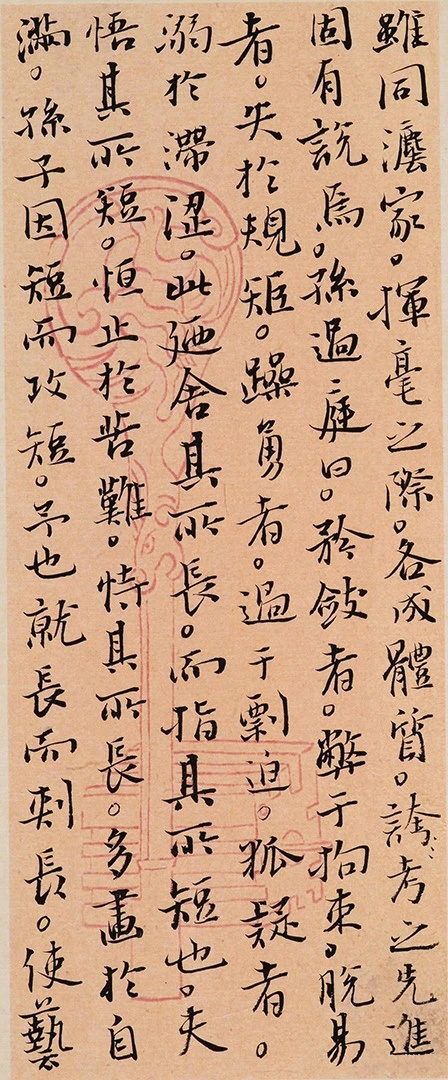 雖同灋家。揮毫之際。各成體質。誇考之先進
固有說焉。孫過庭曰。矜斂者。弊于拘束。脫易
者。失於規矩。躁勇者。過于剽迫。狐疑者。
溺於滯澀。此廼舍其所長。而指其所短也。夫
悟其所短。恒止於苦難。恃其所長。多畫於自
滿。孫子因短而攻短。予也就長而刺長。使藝